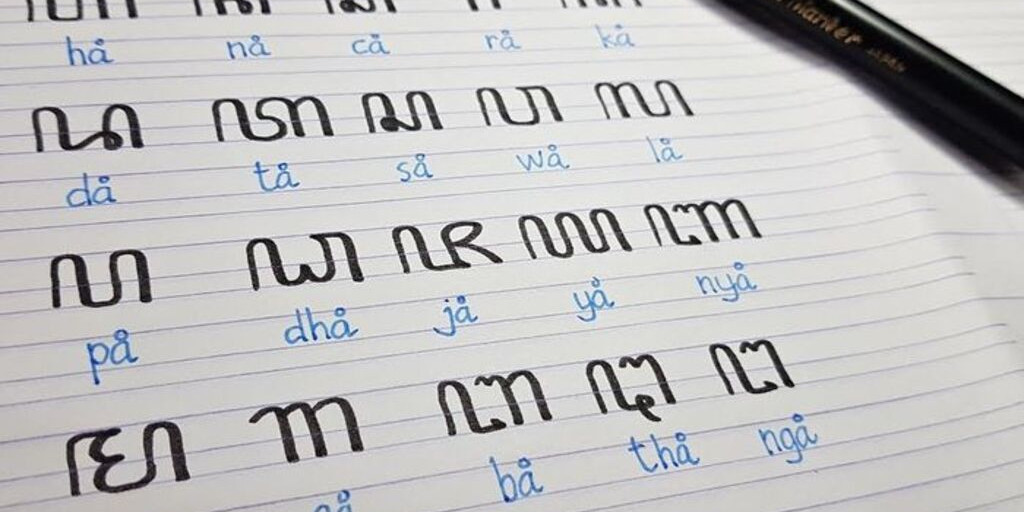 hå nå cå rå kå
ꦢ ꦠ ꦱ ꦮ ꦭ
då tå så wå lå
ꦥ ꦝ ꦗ ꦪ ꦚ
på dhå jå yå nyå
ꦩ ꦒ ꦧ ꦛ ꦔ
bå thå ngå